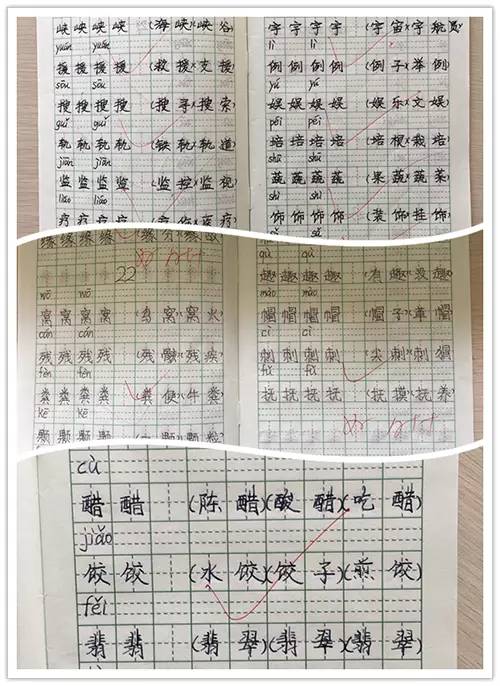 峡 峡 峡 峡 (海 峡)(峡 谷)
yuán yuán
援 援 援 援 (救 援)(支 援)
sōu sōu
搜 搜 搜 搜 (搜 寻)(搜 索)
guǐ guǐ
轨 轨 轨 轨 (铁 轨)(轨 道)
jiān jiān
监 监 监 监 (监 控)(监 视)
liáo liáo
疗 疗 疗 疗
宇 宇 宇 宇 (宇 宙)(宇 航 员)
lì lì
例 例 例 例 (例 子)(举 例)
yú yú
娱 娱 娱 娱 (娱 乐)(文 娱)
péi péi
培 培 培 培 (培 根)(栽 培)
shū shū
蔬 蔬 蔬 蔬 (果 蔬)(蔬 菜)
shì shì
饰 饰 饰 饰 (装 饰)(挂 饰)
缘 缘 缘 缘
22
wō wō
窝 窝 窝 窝
cán cán
残 残 残 残
fèn fèn
粪 粪 粪 粪 (粪 便)(牛 粪)
kē kē
颗 颗 颗 颗
qù qù
趣 趣 趣 趣 (有 趣)(没 趣)
mào mào
帽 帽 帽 帽 (帽 子)(草 帽)
cì cì
刺 刺 刺 刺 (尖 刺)(刺 猬)
fǔ fǔ
抚 抚 抚 抚 (抚 摸)(抚 养)
cù
醋 醋 (陈 醋)(酸 醋)(吃 醋)
jiǎo
饺 饺 (水 饺)(饺 子)(煎 饺)
fěi
翡 翡 (翡 翠)(翡 翠)(翡 翠)